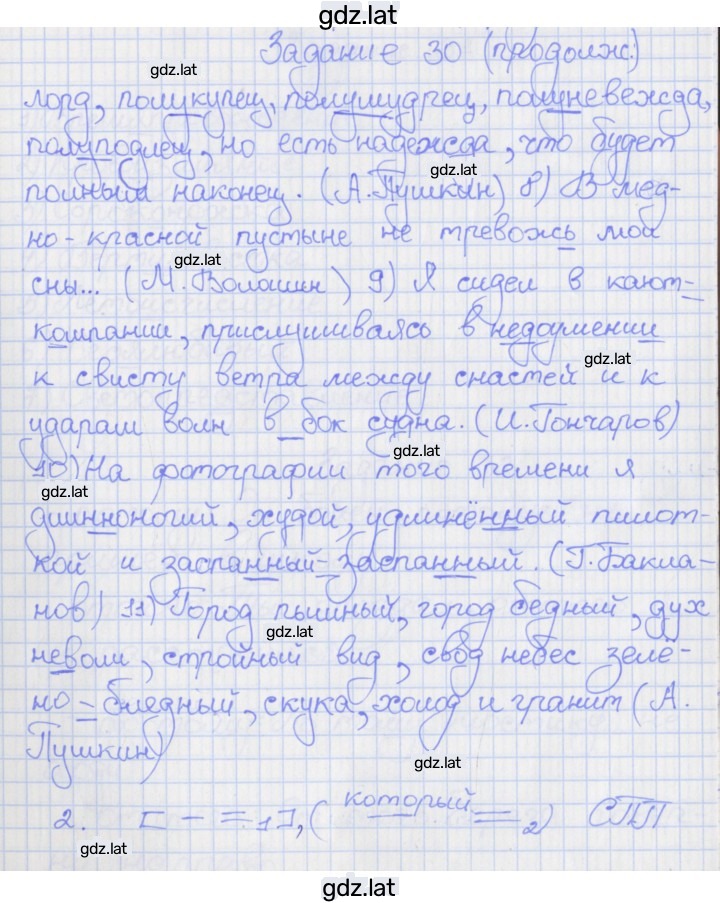 gdz.lat
Задание 30 (продолж.)
gdz.lat
лорд, полукупец, полумудрец, полуневежда,
полуподлец, но есть надежда, что будет
gdz.lat
полным наконец. (А.Пушкин) 8) В мед-
но-красной пустыне не тревожь мои
gdz.lat
сны... (М.Волошин) 9) Я сидел в кают-
компании, прислушиваясь в недоумении
gdz.lat
к свисту ветра между снастей и к
ударам волн в бок судна. (И.Гончаров)
gdz.lat
10) На фотографии того времени я
gdz.lat
длинноногий, худой, удлинённый пилот-
кой и заспанный-заспанный. (Г.Бакла-
нов) 11) Город пышный, город бедный, дух
gdz.lat
неволи, стройный вид, свод небес зелё-
но-бледный, скука, холод и гранит (А.
Пушкин)
gdz.lat
который
2. [ - = 1], ( — = 2) СПП
gdz.lat
gdz.lat